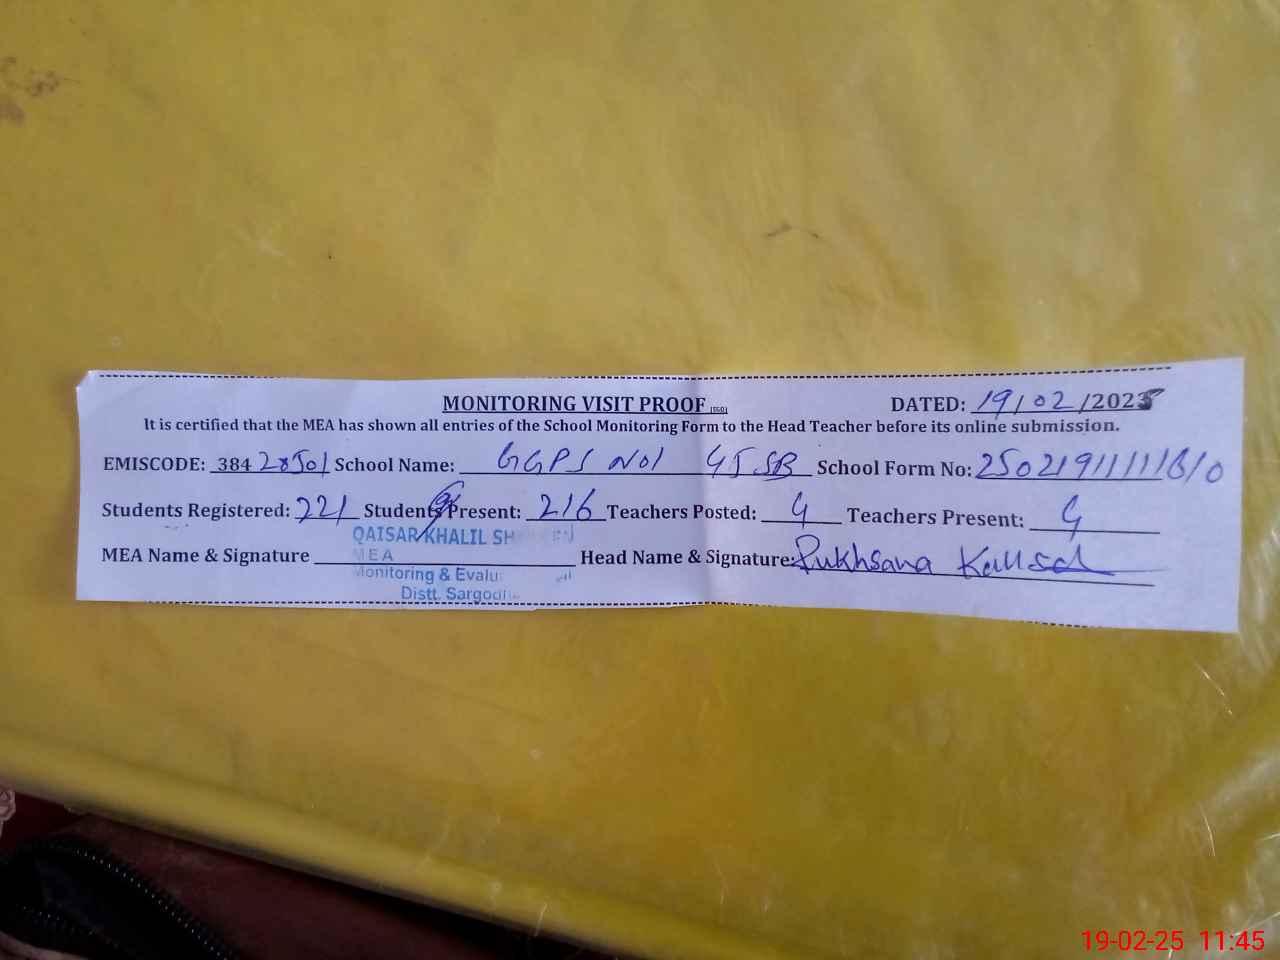 MONITORING VISIT PROOF DATED: 19/02/2025
It is certified that the MEA has shown all entries of the School Monitoring Form to the Head Teacher before its online submission.
EMISCODE: 38428501 School Name: GGPS NO1 45 SB School Form No:
Students Registered: 221 Students Present: 216 Teachers Posted: 4 Teachers Present: 4
QAISAR KHALIL
MEA Name & Signature Head Name & Signature: Rukhsana
MEA
Monitoring &
Distt.
19-02-25 11:45